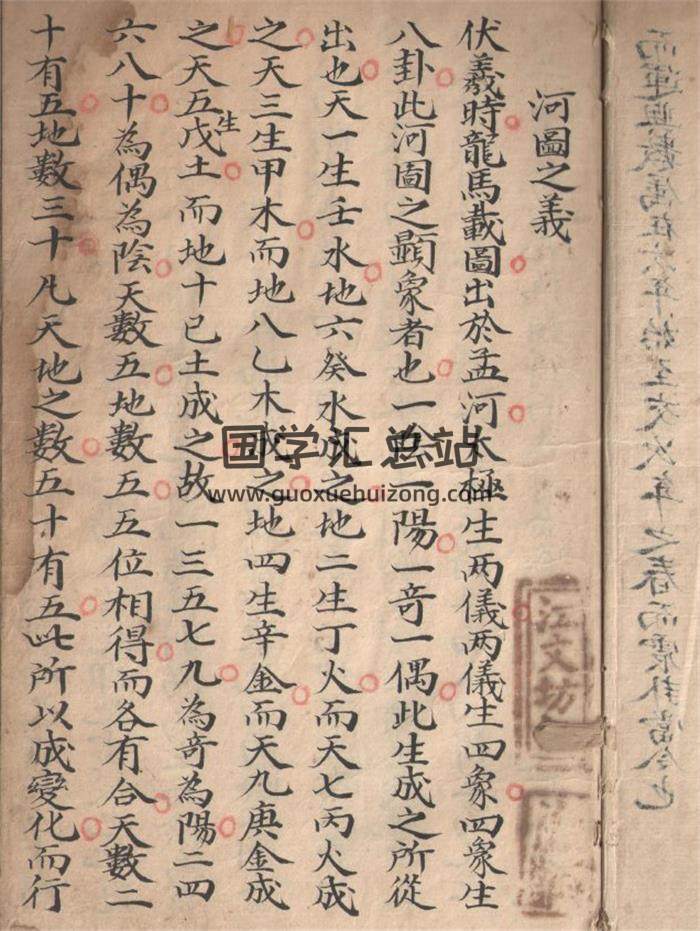 河圖之義
伏羲時龍馬載圖出於孟河太極生两儀两儀生四象四象生
八卦此河圖之顯象者也一陰一陽一奇一偶此生成之所從
出也天一生壬水地六癸水成之地二生丁火而天七丙火成
之天三生甲木而地八乙木成之地四生辛金而天九庚金成
之天五生戊土而地十己土成之故一三五七九為奇為陽二四
六八十為偶為陰天數五地數五五位相得而各有合天數二
十有五地數三十凡天地之數五十有五此所以成變化而行
江文坊
国学汇总站
www.guoxuehuizong.com